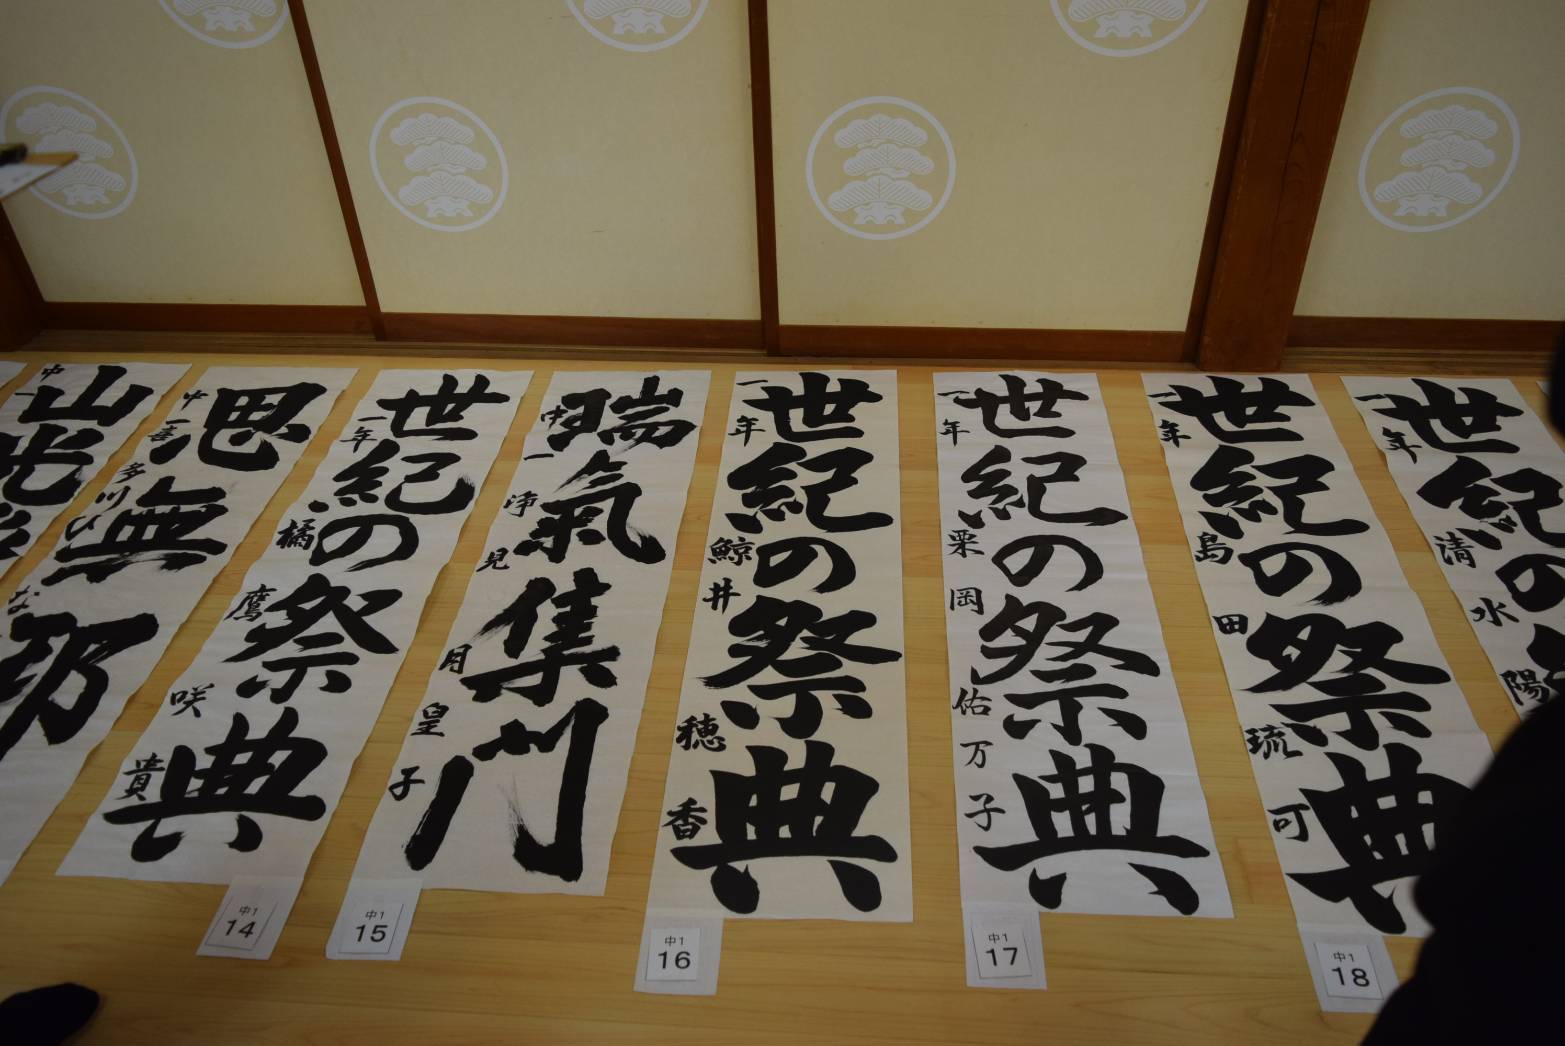 中一
山光
中一
思無邪
一年
世紀の祭典
橘鷹咲貴
中1
14
中一
瑞氣集門
浄見月皇子
中1
15
一年
世紀の祭典
鯨井穂香
中1
16
一年
世紀の祭典
栗岡佑万子
中1
17
一年
世紀の祭典
島田琉可
中1
18
一年
世紀の
清水陽